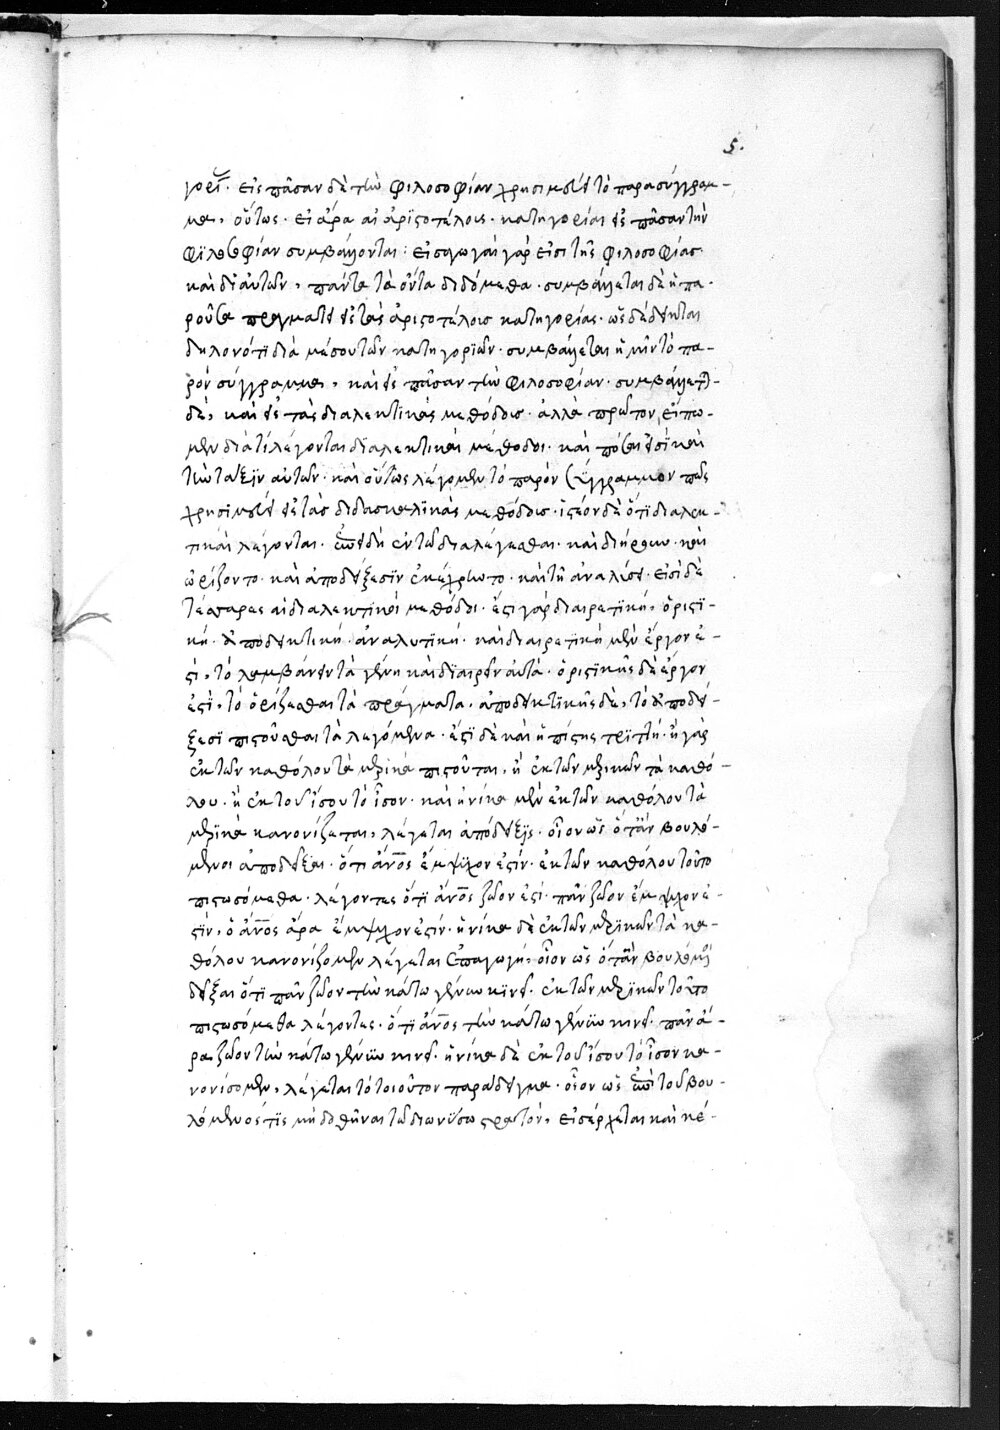 5.
γορί. εἰς πᾶσαν δὲ τὴν φιλοσοφίαν χρησιμεύει τὸ παρὸν σύγγραμ-
μα, οὕτως. εἰ ἄρα αἱ ἀριστοτέλους κατηγορίαι εἰς πᾶσαν τὴν
φιλοσοφίαν συμβάλλονται· εἰσαγωγαὶ γάρ εἰσι τῆς φιλοσοφίας
καὶ δι' αὐτῶν, πάντα τὰ ὄντα διδόμεθα. συμβάλλεται δὲ ἡ πα-
ροῦσα πραγματεία εἰς τὰς ἀριστοτέλους κατηγορίας. ὡς δέδεικται
δηλονότι διὰ μέσου τῶν κατηγοριῶν. συμβάλλεται ἡμῖν τὸ πα-
ρὸν σύγγραμμα, καὶ εἰς πᾶσαν τὴν φιλοσοφίαν. συμβάλλεται
δὲ, καὶ εἰς τὰς διαλεκτικὰς μεθόδους. ἀλλὰ πρῶτον εἴπω-
μεν διατί λέγονται διαλεκτικαὶ μέθοδοι. καὶ πόσαι εἰσὶ καὶ
τὴν τάξιν αὐτῶν. καὶ οὕτως λέγομεν τὸ παρὸν σύγγραμμα πῶς
χρησιμεύει εἰς τὰς διδασκαλικὰς μεθόδους. ἰστέον δὲ ὅτι διαλεκ-
τικαὶ λέγονται. ἐπειδὴ ἐν τῶ διαλέγεσθαι. καὶ διήρουν. καὶ
ὡρίζοντο. καὶ ἀποδείξεσιν ἐκέχρηντο. καὶ τῇ ἀναλύσει. εἰσὶ δὲ
τέσσαρες αἱ διαλεκτικαὶ μέθοδοι. ἔστι γὰρ διαιρετική, ὁριστι-
κή. ἀποδεικτική. ἀναλυτική. καὶ διαιρετικὴ μὲν ἔργον ἐ-
στὶ, τὸ λαμβάνειν τὰ γένη καὶ διαιρεῖν αὐτά. ὁριστικῆς δὲ ἔργον
ἐστὶ, τὸ ὁρίζεσθαι τὰ πράγματα. ἀποδεικτικῆς δὲ, τὸ ἀποδεί-
ξεσι πιστοῦσθαι τὰ λεγόμενα. ἔστι δὲ καὶ ἡ πίστις τριττή. ἢ γὰρ
ἐκ τῶν καθόλου τὰ μερικὰ πιστοῦται, ἢ ἐκ τῶν μερικῶν τὰ καθό-
λου. ἢ ἐκ τοῦ ἴσου τὸ ἴσον. καὶ ἡνίκα μὲν ἐκ τῶν καθόλου τὰ
μερικὰ κανονίζεται, λέγεται ἀπόδειξις. οἷον ὡς ὅταν βουλό-
μενοι ἀποδεῖξαι. ὅτι ἄνος ἔμψυχον ἐστίν. ἐκ τῶν καθόλου τοῦτο
πιστωσόμεθα. λέγοντες ὅτι ἄνος ζῶον ἐστί. πᾶν ζῶον ἔμψυχον ἐ-
στίν, ὁ ἄνος ἄρα ἔμψυχον ἐστίν. ἡνίκα δὲ ἐκ τῶν μερικῶν τὰ κα-
θόλου κανονίζομεν λέγεται ἐπαγωγή, οἷον ὡς ὅταν βουλόμενοι
δεῖξαι ὅτι πᾶν ζῶον τὴν κάτω γένυν κινεῖ. ἐκ τῶν μερικῶν τοῦτο
πιστωσόμεθα λέγοντες. ὅτι ἄνος τὴν κάτω γένυν κινεῖ. πᾶν ἄ-
ρα ζῶον τὴν κάτω γένυν κινεῖ. ἡνίκα δὲ ἐκ τοῦ ἴσου τὸ ἴσον κα-
νονίσομεν, λέγεται τὸ τοιοῦτον παράδειγμα. οἷον ὡς ἐπὶ τοῦ βου-
λόμενος τις μὴ δοθῆναι τῶ διονυσίω στρατόν, εἰσέρχεται καὶ κέ-